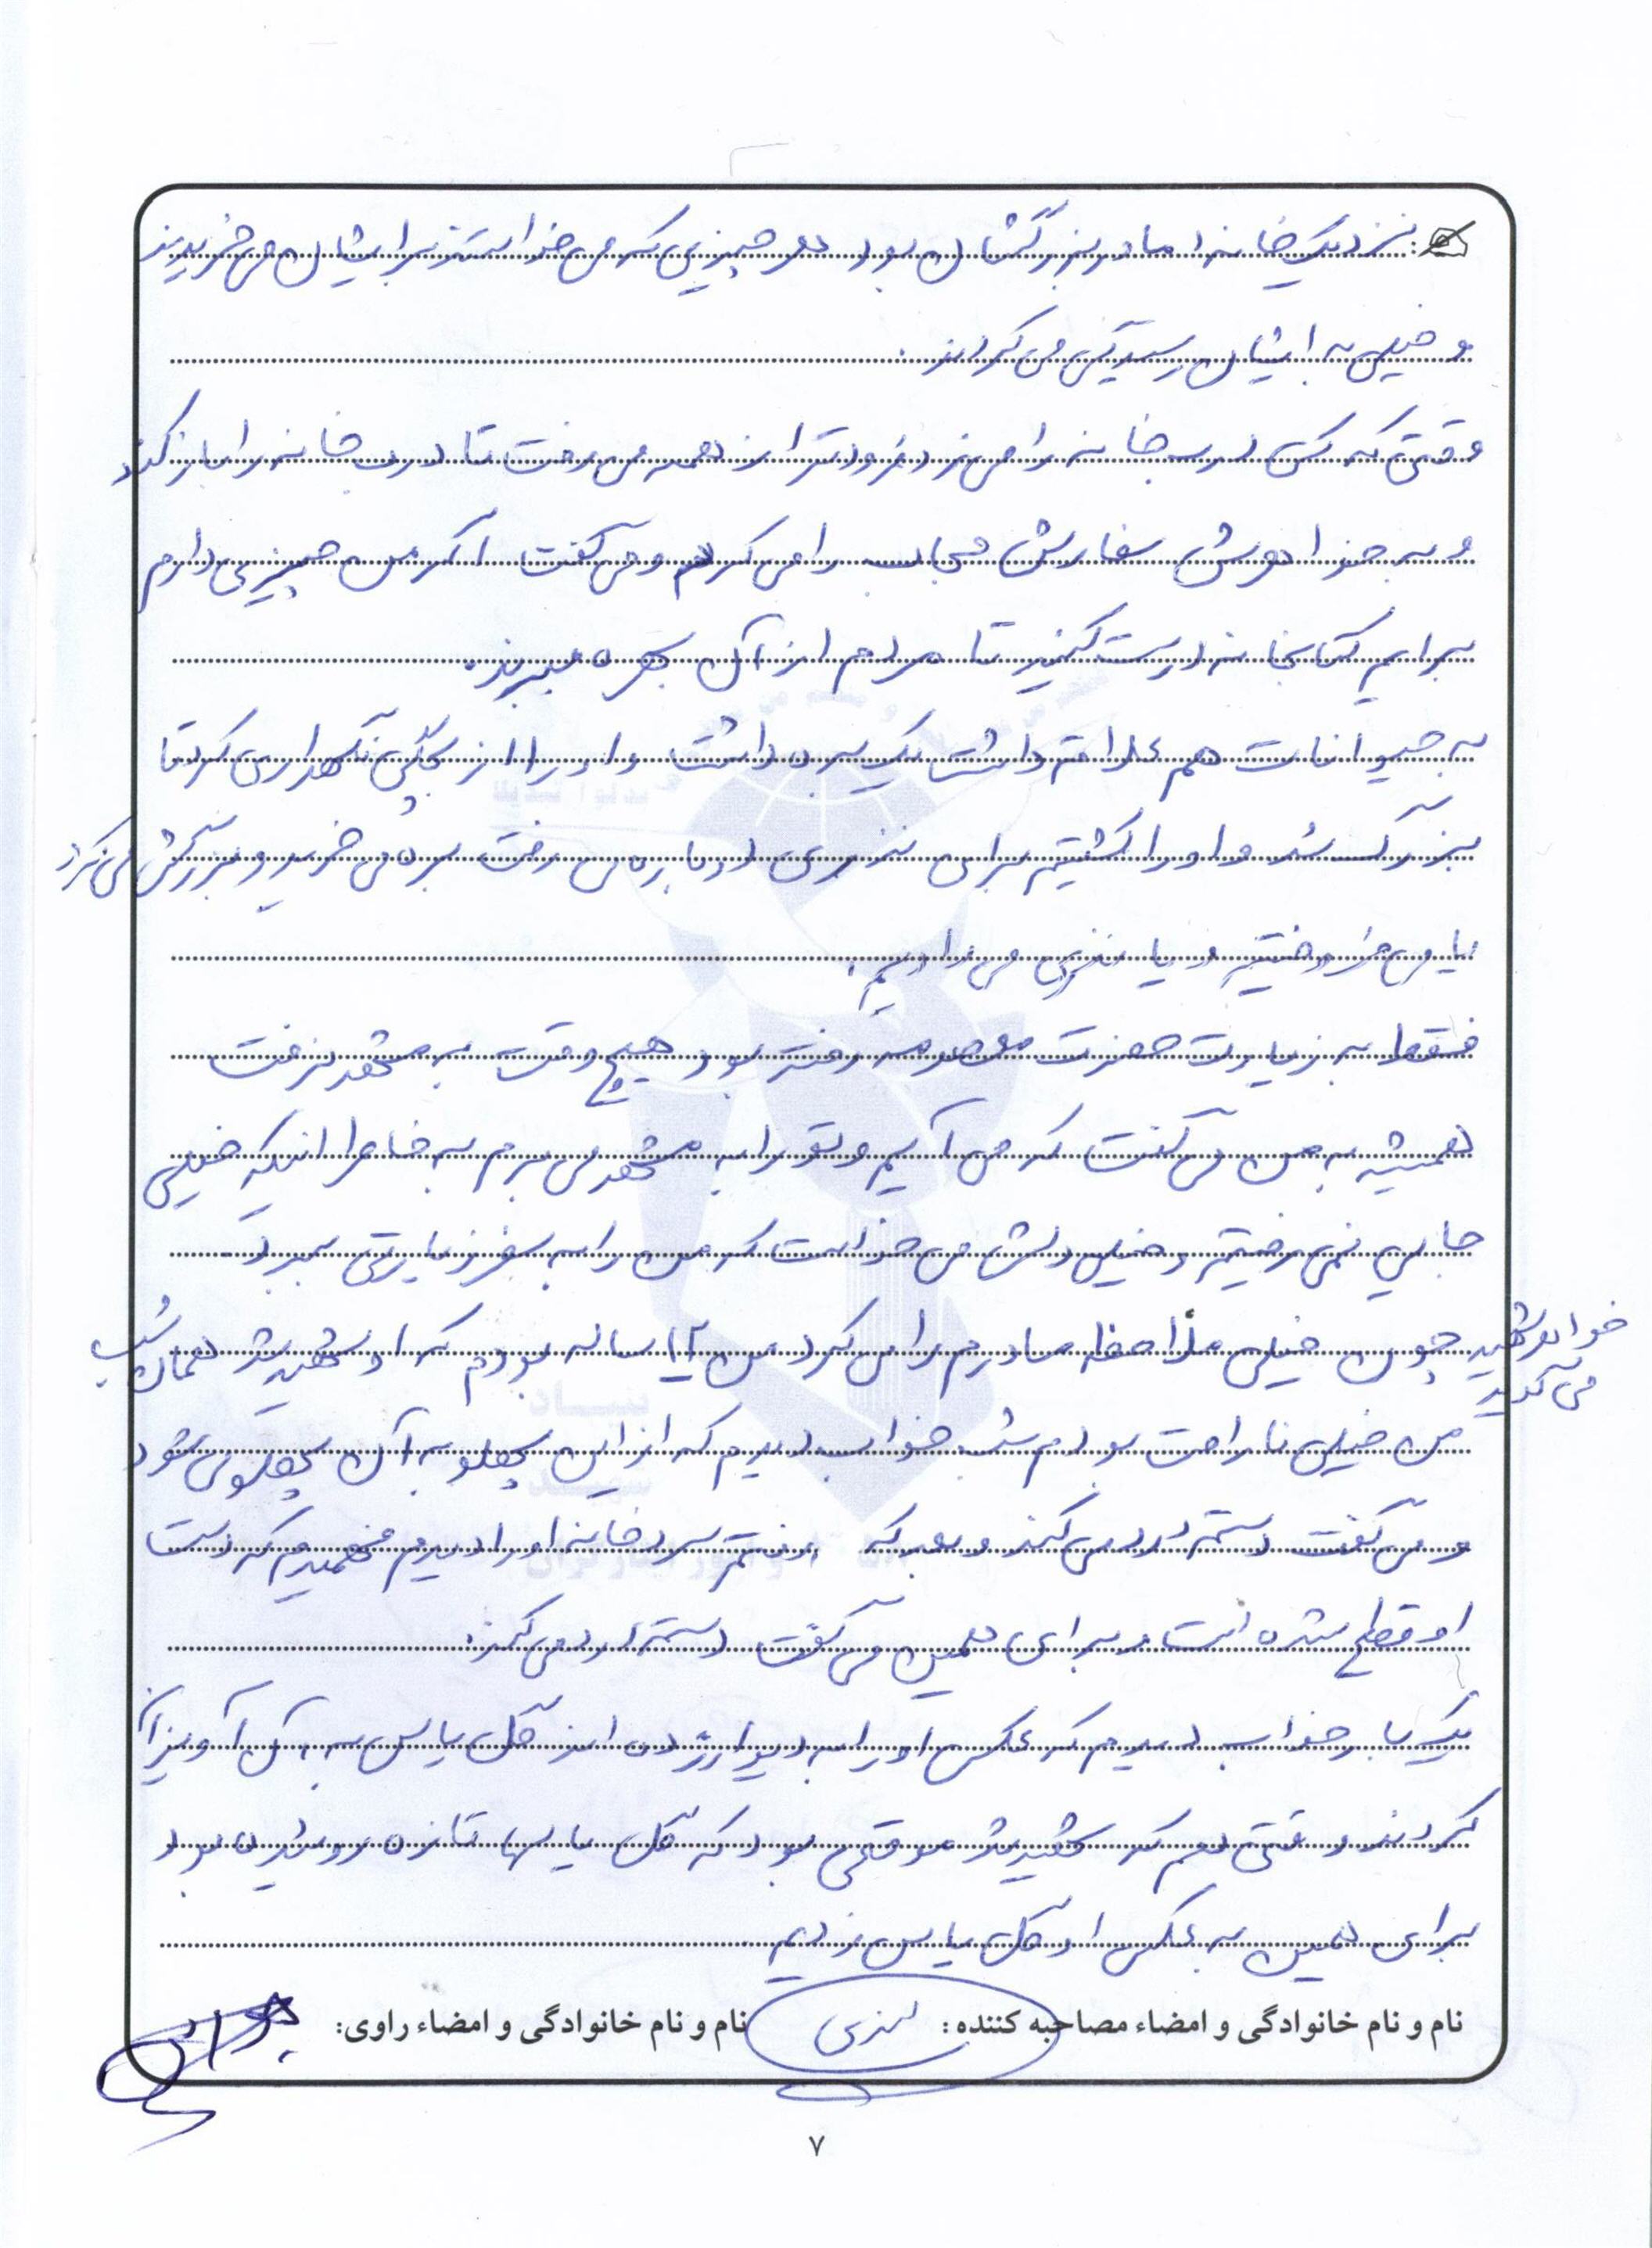 نزدیک خانه مادربزرگشان بود هر چیزی که می خواستند برایشان می خریدند
و خیلی به ایشان رسیدگی می کردند.
وقتی که کسی درب خانه را می زد زودتر از همه می رفت تا درب خانه را باز کند
و به خواهرش سفارش حجاب را می کرد و می گفت اگر من چیزی دارم
برایم کتابخانه درست کنید تا مردم از آن بهره ببرند.
به حیوانات هم علاقه داشت یک بره داشت و او را از بچگی نگهداری کرد تا
بزرگ شد و او را کشتیم برای نذری دوباره می رفت بره می خرید و بزرگش می کرد
یا می فروختیم و یا نذری می دادیم.
فقط به زیارت حضرت معصومه رفته بود هیچ وقت به مشهد نرفت
همیشه به من می گفت که می آیم و تو را به مشهد می برم به خاطر اینکه خیلی
جایی نمی رفتیم و خیلی دلش می خواست که من را به سفر زیارتی ببرد
خواهر شهید می گوید
چون خیلی ملاحظه مادرم را می کرد من ۱۲ ساله بودم که او شهید شد همان شب
من خیلی ناراحت بودم شب خواب دیدم که از این پهلو به آن پهلو می شود
و می گفت دستم درد می کند و بعد که رفتم سردخانه او را دیدم فهمیدم که دست
او قطع شده است و برای همین می گفت دستم درد می کند.
یک بار خواب دیدم که عکس او را به دیوار زدن از گل یاس به آن آویزان
کردند وقتی هم که شهید شد موقعی بود که گل یاسها تازه رو شده بود
برای همین به عکس او گل یاس زدیم
نام و نام خانوادگی و امضاء مصاحبه کننده: نام و نام خانوادگی و امضاء راوی:
۷